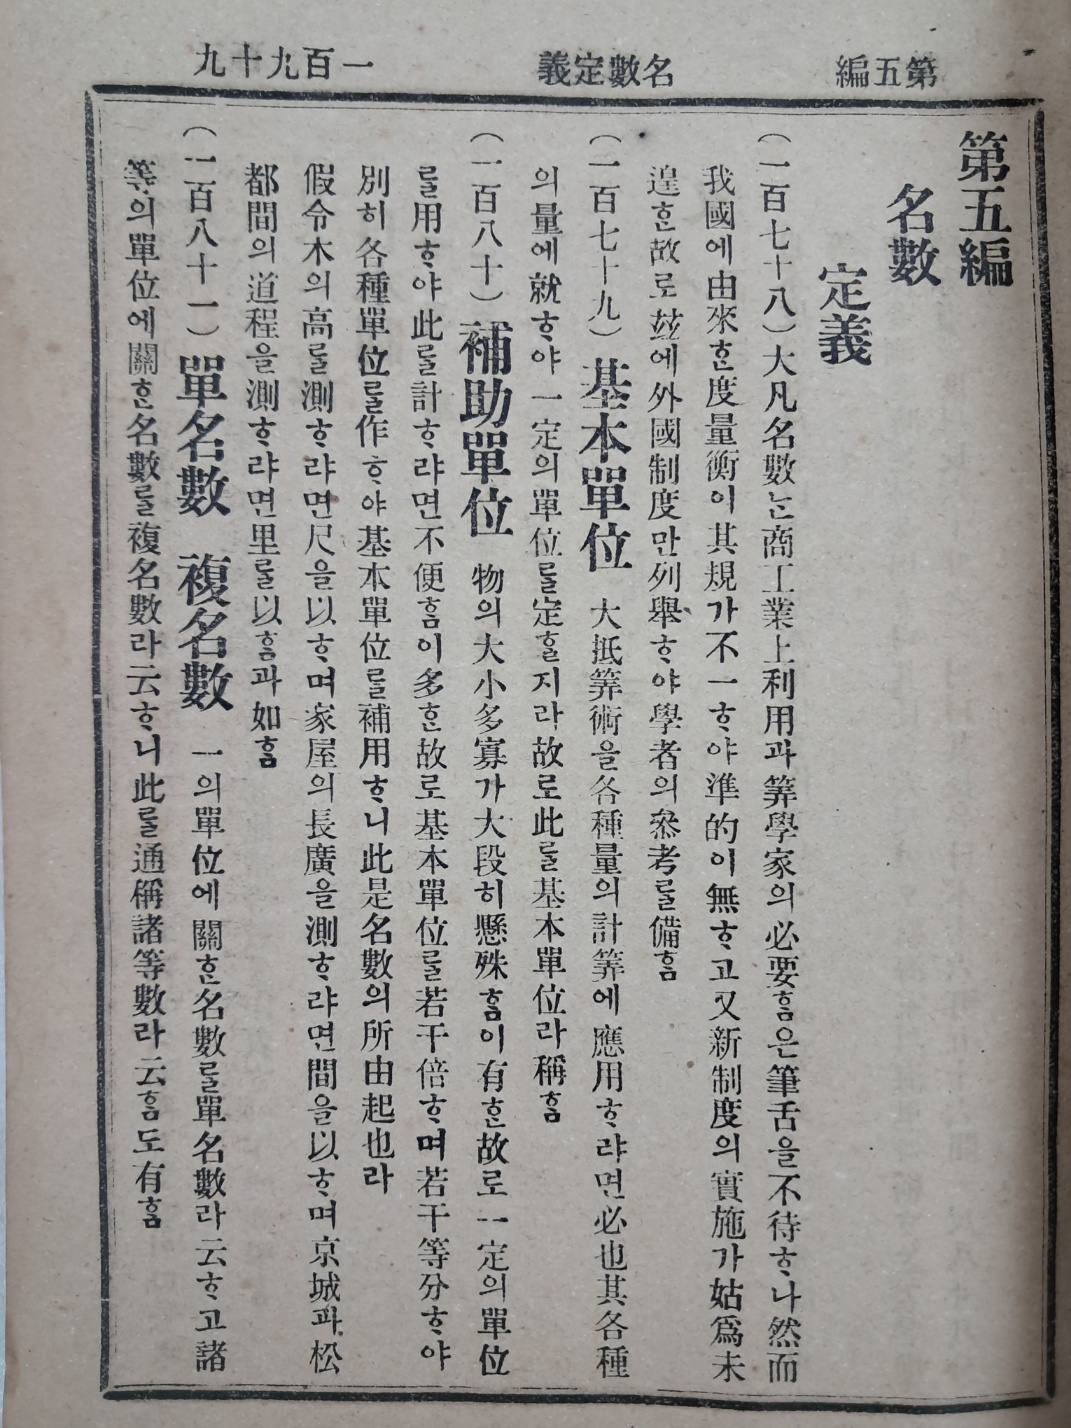 第五編
名數定義
一百九十九
第五編
名數
定義
(一百七十八)大凡名數ᄂᆞᆫ商工業上利用과筭學家의必要ᄒᆞᆷ은筆舌을不待ᄒᆞ나然而
我國에由來ᄒᆞᆫ度量衡이其規가不一ᄒᆞ야準的이無ᄒᆞ고又新制度의實施가姑爲未
遑ᄒᆞᆫ故로玆에外國制度만列舉ᄒᆞ야學者의叅考ᄅᆞᆯ備ᄒᆞᆷ
(一百七十九)基本單位 大抵筭術을各種量의計筭에應用ᄒᆞ랴면必也其各種
의量에就ᄒᆞ야一定의單位ᄅᆞᆯ定ᄒᆞᆯ지라故로此ᄅᆞᆯ基本單位라稱ᄒᆞᆷ
(一百八十)補助單位 物의大小多寡가大段히懸殊ᄒᆞᆷ이有ᄒᆞᆫ故로一定의單位
ᄅᆞᆯ用ᄒᆞ야此ᄅᆞᆯ計ᄒᆞ랴면不便ᄒᆞᆷ이多ᄒᆞᆫ故로基本單位ᄅᆞᆯ若干倍ᄒᆞ며若干等分ᄒᆞ야
別히各種單位ᄅᆞᆯ作ᄒᆞ야基本單位ᄅᆞᆯ補用ᄒᆞ니此是名數의所由起也라
假令木의高ᄅᆞᆯ測ᄒᆞ랴면尺을以ᄒᆞ며家屋의長廣을測ᄒᆞ랴면間을以ᄒᆞ며京城과松
都間의道程을測ᄒᆞ랴면里ᄅᆞᆯ以ᄒᆞᆷ과如ᄒᆞᆷ
(一百八十一)單名數 複名數 一의單位에關ᄒᆞᆫ名數ᄅᆞᆯ單名數라云ᄒᆞ고諸
等의單位에關ᄒᆞᆫ名數ᄅᆞᆯ複名數라云ᄒᆞ니此ᄅᆞᆯ通稱諸等數라云ᄒᆞᆷ도有ᄒᆞᆷ